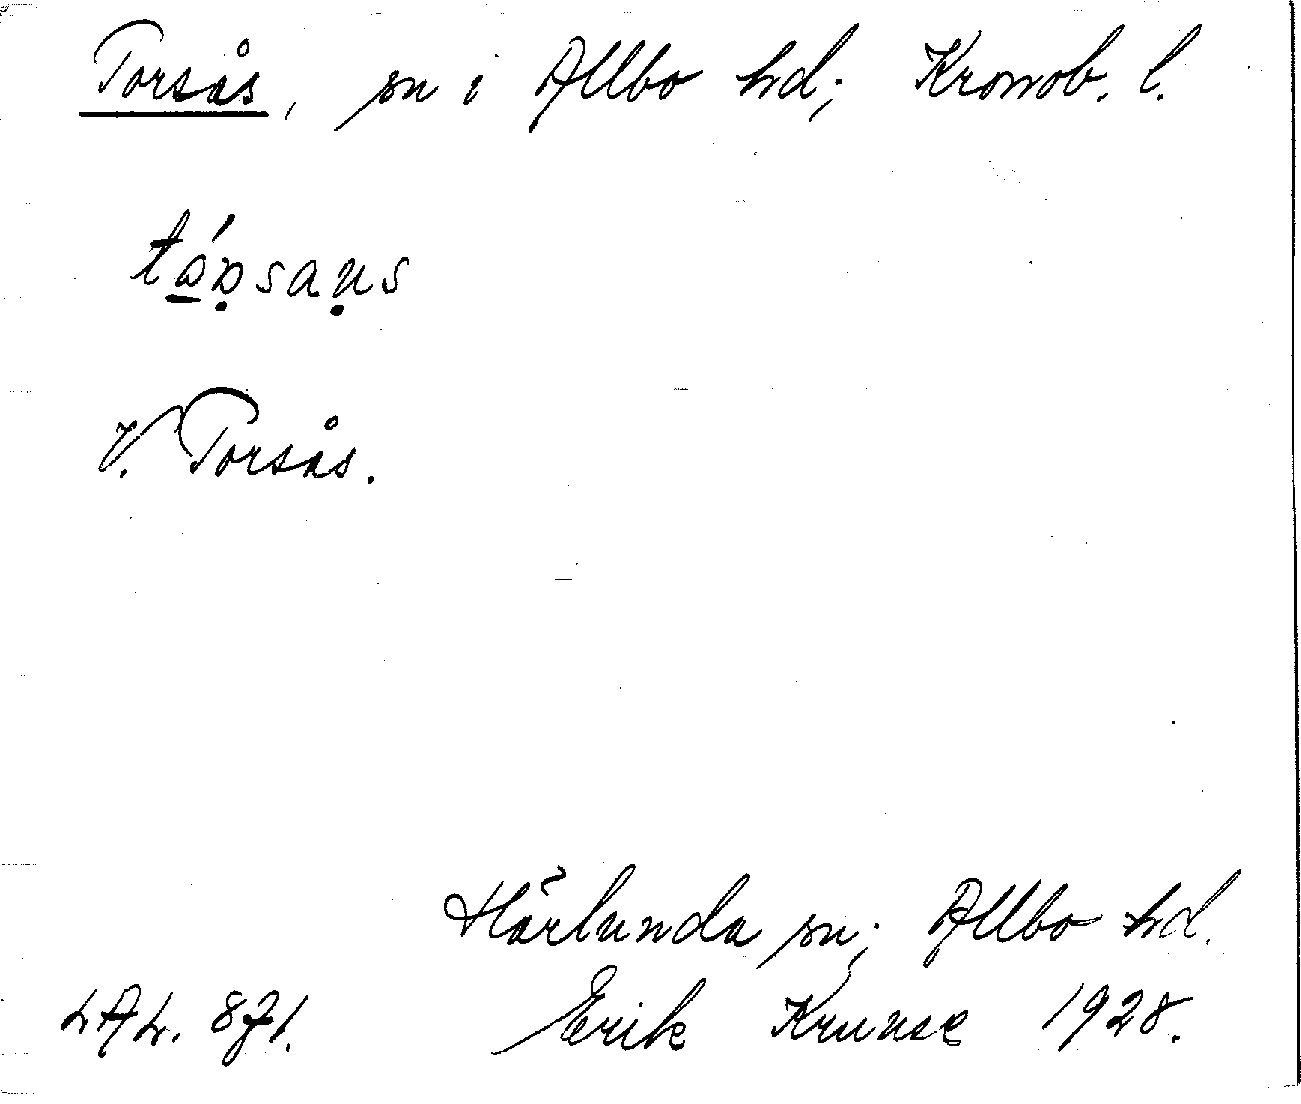 Torsås, sn i Allbo hd; Kronob. l.
V. Torsås.
Härlunda sn; Allbo hd.
LAL. 871. Erik Kruuse 1928.